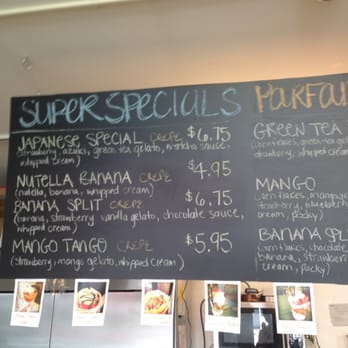 SUPER SPECIALS
JAPANESE SPECIAL CREPE $6.75
(strawberry, azuki, green tea gelato, mochi, sauce,
whipped cream)
NUTELLA BANANA CREPE $4.95
(nutella, banana, whipped cream)
BANANA SPLIT CREPE $6.75
(banana, strawberry vanilla gelato, chocolate sauce,
whipped cream)
MANGO TANGO CREPE $5.95
(strawberry, mango gelato, whipped cream)
PARFAI
GREEN TEA
(corn flakes, green tea gel
strawberry, whipped cream
MANGO
(corn flakes, mango ge
strawberry, blueberr
cream, pocky)
BANANA SPL
(corn flakes, chocolate
banana, strawber
cream, pocky)